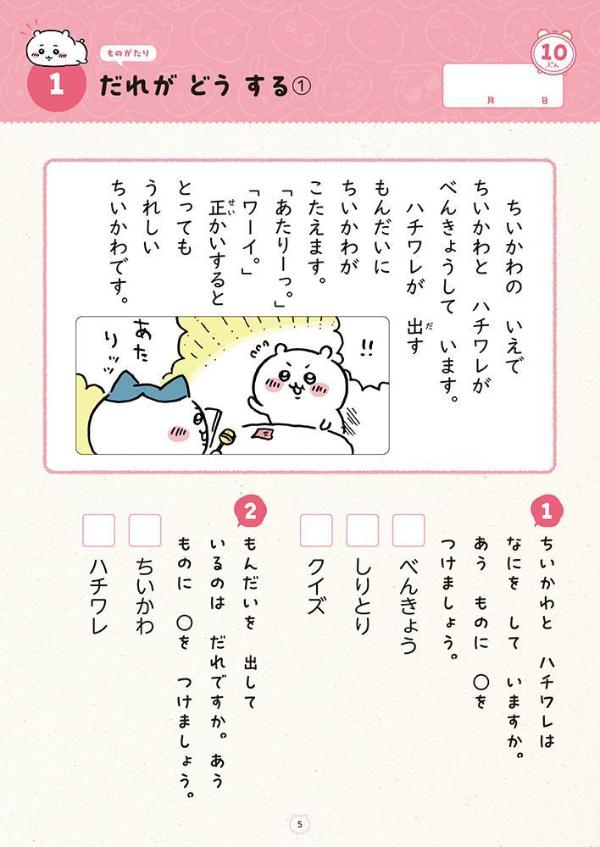 ものがたり
1
だれが どう する①
10
ぷん
月 日
ちいかわの いえで
ちいかわと ハチワレが
べんきょうして います。
ハチワレが 出す
だ
もんだいに
ちいかわが
こたえます。
「あたりーっ。」
「ワーイ。」
正かいすると
せい
とっても
うれしい
ちいかわです。
!!
あた
りッッ
1
ちいかわと ハチワレは
なにを して いますか。
あう ものに ○を
つけましょう。
べんきょう
しりとり
クイズ
2
もんだいを 出して
いるのは だれですか。あう
ものに ○を つけましょう。
ちいかわ
ハチワレ
5